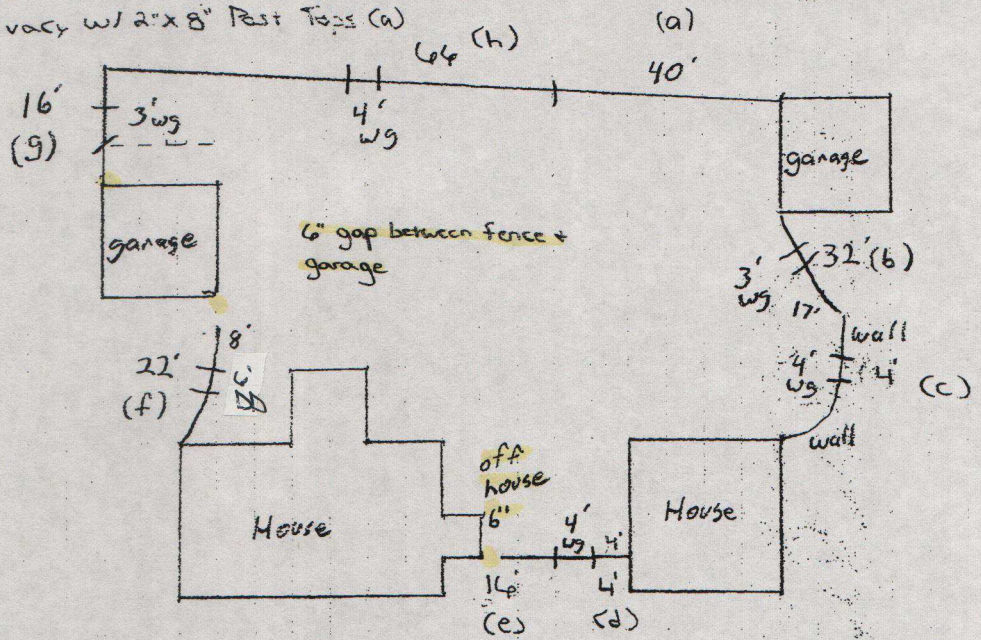 vary w/ 2"x 8" Post Tops (a)
66 (h)
(a)
40'
16'
(g)
3' wg
4'
wg
garage
garage
6" gap between fence +
garage
3'
wg
32' (b)
17'
wall
4'
wg
4'
(c)
wall
8'
22'
(f)
3'
off
house
6"
House
4'
wg
4'
House
16'
4'
(e)
(d)